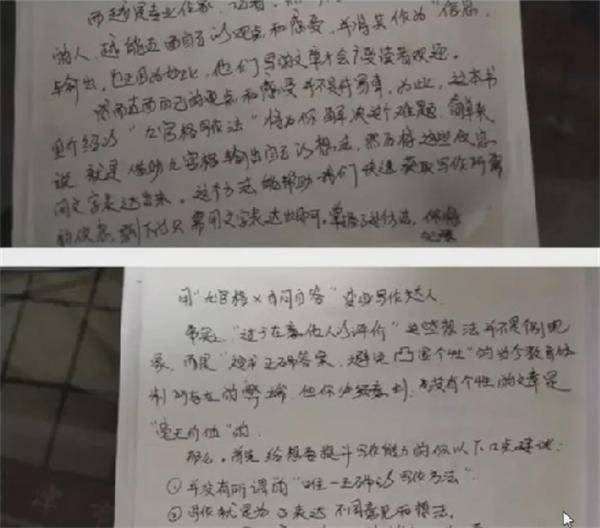 而越是专业作家、记者,
的人,越能直面自己的观点和感受,并将其作为"信息"
与输出,也正因为如此,他们写的文章才会广受读者欢迎。
然而直面自己的观点和感受并不是件易事,为此,这本书
里介绍的"九宫格写作法"将为你解决这个难题。简单来
说就是借助九宫格输出自己的想法,然后将这些信息
用文字表达出来。这个方法能帮助我们快速获取写作所需
的信息,剩下的只需用文字表达出来即可。掌握了这个方法,你将
用"九宫格×自问自答"变身写作达人
事实上,"过于在意他人的评价"这些想法并不是个别现
象,而是"追求正确答案,避免凸显个性"的当今教育体
制所存在的弊端。但你必须意识到,没有个性的文章是
"毫无价值"的。
那么,首先给想要提升写作能力的你以下口点建议:
①并没有所谓的"唯一正确的写作方法"。
②写作就是为了表达不同意见和想法。